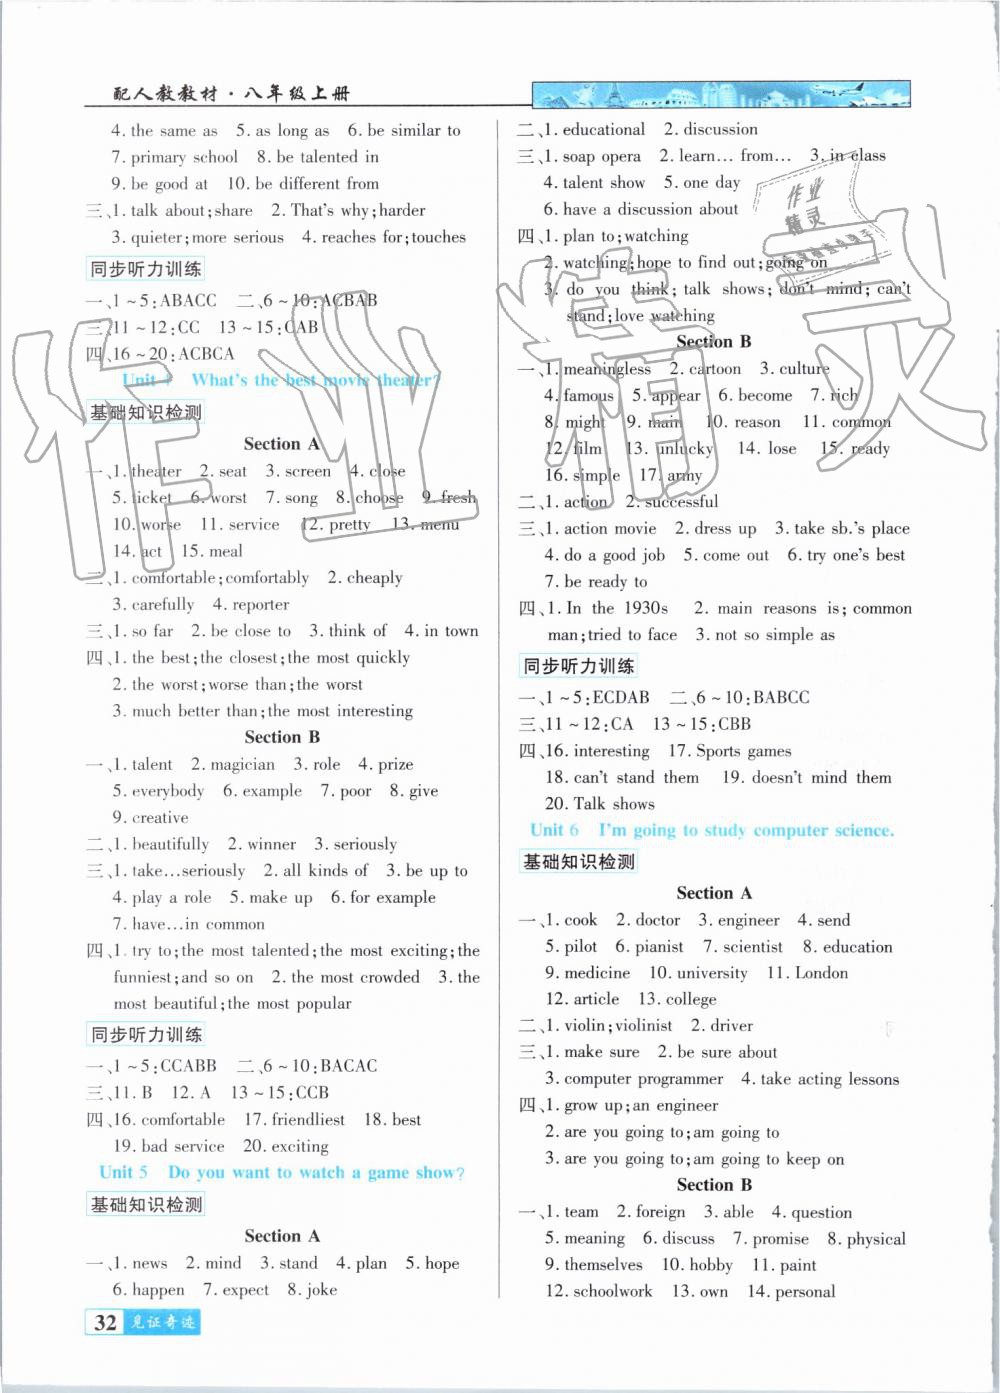 配人教教材·八年级上册
4. the same as 5. as long as 6. be similar to
7. primary school 8. be talented in
9. be good at 10. be different from
三、1. talk about;share 2. That's why;harder
3. quieter;more serious 4. reaches for;touches
同步听力训练
一、1～5:ABACC 二、6～10:ACBAB
三、11～12:CC 13～15:CAB
四、16～20:ACBCA
Unit 4 What's the best movie theater?
基础知识检测
Section A
一、1. theater 2. seat 3. screen 4. close
5. ticket 6. worst 7. song 8. choose 9. fresh
10. worse 11. service 12. pretty 13. menu
14. act 15. meal
二、1. comfortable;comfortably 2. cheaply
3. carefully 4. reporter
三、1. so far 2. be close to 3. think of 4. in town
四、1. the best;the closest;the most quickly
2. the worst;worse than;the worst
3. much better than;the most interesting
Section B
一、1. talent 2. magician 3. role 4. prize
5. everybody 6. example 7. poor 8. give
9. creative
二、1. beautifully 2. winner 3. seriously
三、1. take…seriously 2. all kinds of 3. be up to
4. play a role 5. make up 6. for example
7. have…in common
四、1. try to;the most talented;the most exciting;the
funniest;and so on 2. the most crowded 3. the
most beautiful;the most popular
同步听力训练
一、1～5:CCABB 二、6～10:BACAC
三、11. B 12. A 13～15:CCB
四、16. comfortable 17. friendliest 18. best
19. bad service 20. exciting
Unit 5 Do you want to watch a game show?
基础知识检测
Section A
一、1. news 2. mind 3. stand 4. plan 5. hope
6. happen 7. expect 8. joke
32 见证奇迹
二、1. educational 2. discussion
三、1. soap opera 2. learn… from… 3. in class
4. talent show 5. one day
6. have a discussion about
四、1. plan to;watching
2. watching;hope to find out;going on
3. do you think; talk shows; don't mind; can't
stand;love watching
Section B
一、1. meaningless 2. cartoon 3. culture
4. famous 5. appear 6. become 7. rich
8. might 9. main 10. reason 11. common
12. film 13. unlucky 14. lose 15. ready
16. simple 17. army
二、1. action 2. successful
三、1. action movie 2. dress up 3. take sb.'s place
4. do a good job 5. come out 6. try one's best
7. be ready to
四、1. In the 1930s 2. main reasons is; common
man;tried to face 3. not so simple as
同步听力训练
一、1～5:ECDAB 二、6～10:BABCC
三、11～12:CA 13～15:CBB
四、16. interesting 17. Sports games
18. can't stand them 19. doesn't mind them
20. Talk shows
Unit 6 I'm going to study computer science.
基础知识检测
Section A
一、1. cook 2. doctor 3. engineer 4. send
5. pilot 6. pianist 7. scientist 8. education
9. medicine 10. university 11. London
12. article 13. college
二、1. violin;violinist 2. driver
三、1. make sure 2. be sure about
3. computer programmer 4. take acting lessons
四、1. grow up;an engineer
2. are you going to;am going to
3. are you going to;am going to keep on
Section B
一、1. team 2. foreign 3. able 4. question
5. meaning 6. discuss 7. promise 8. physical
9. themselves 10. hobby 11. paint
12. schoolwork 13. own 14. personal
作业精灵
作业
精灵